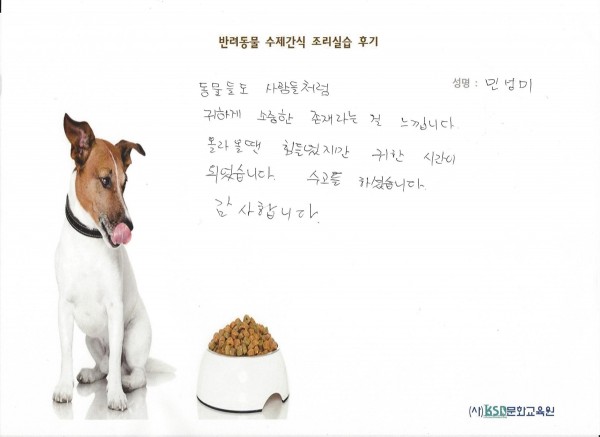 반려동물 수제간식 조리실습 후기
성명 : 민성미
동물들도 사람들처럼
귀하게 소중한 존재라는 걸 느낍니다
몰라 볼땐 힘들었지만 귀한 시간이
되었습니다. 수고들 하셨습니다.
감사합니다.
(사)KSD문화교육원